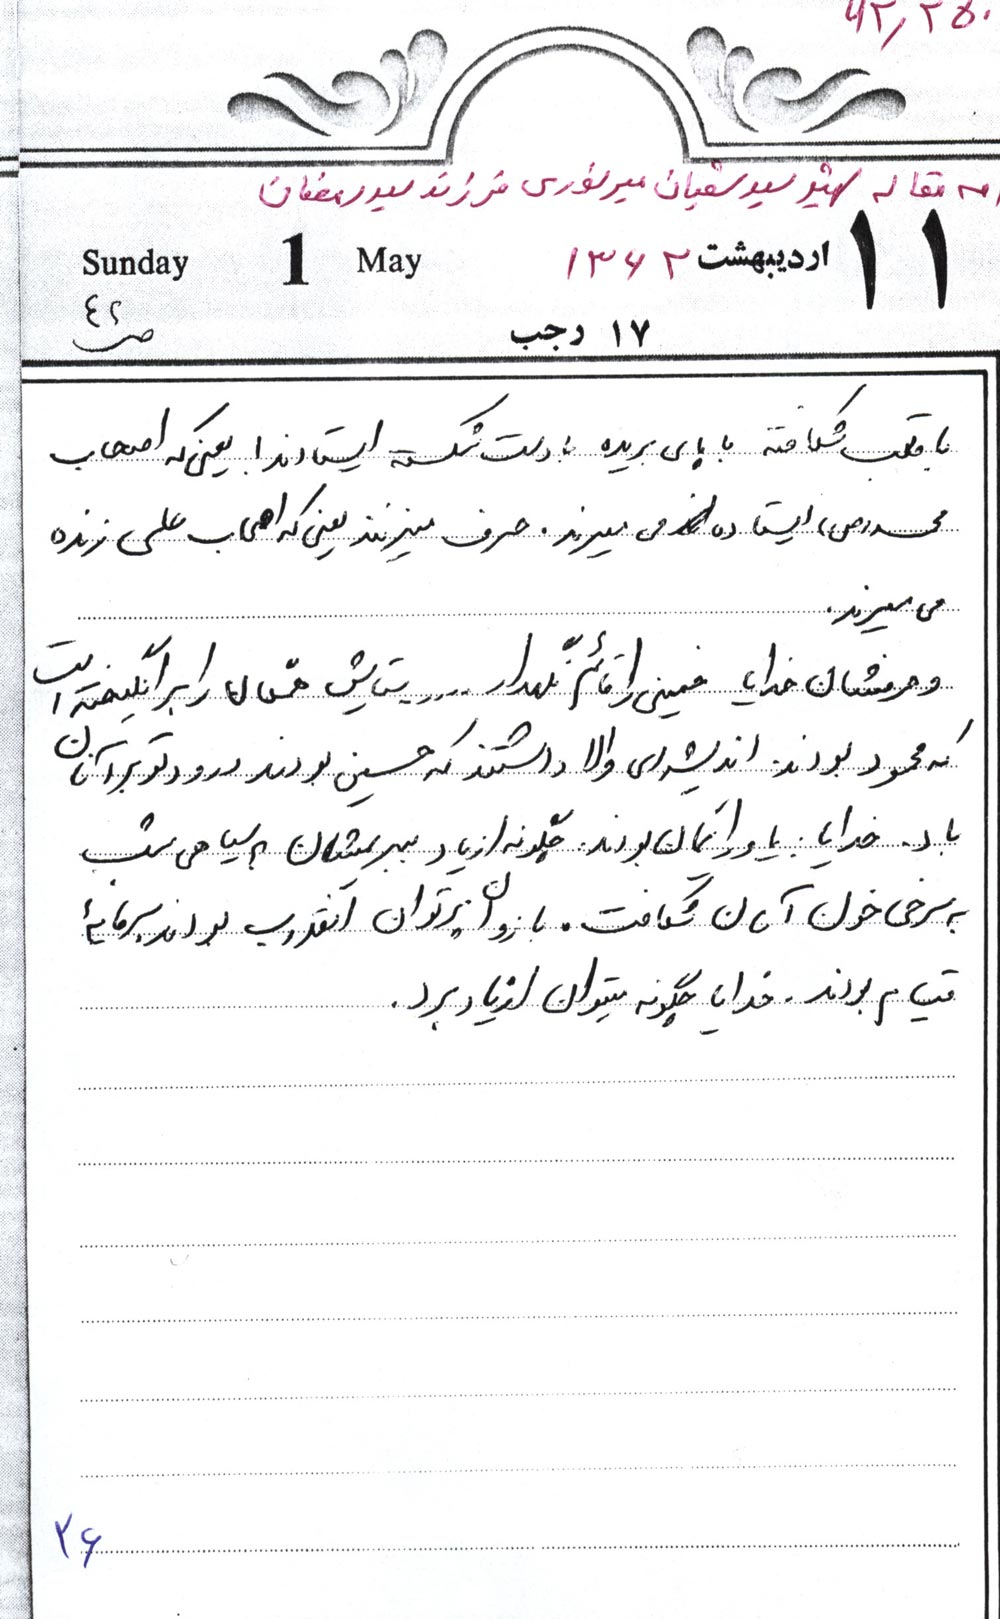 ۴۲٫۲۵۰
مقاله شهید سید شعبان میر نوری فرزند سید رمضان
Sunday 1 May ۱۳۶۲ اردیبهشت ۱۱
ص ٤٢
۱۷ رجب
با قلب شکافته با پای بریده با دست شکسته ایستادند! یعنی که اصحاب
محمد (ص) ایستاده می میرند. حرف میزنند یعنی که اصحاب علی زنده
می میرند.
و حرفشان خدایا خمینی را قائم نگهدار .... ستایش همگان را برانگیخته است
که محمود بودند. اندیشه ای والا داشتند که حسینی بودند درود تو بر آنان
باد. خدایا، یاور ایمان بودند. چگونه از یاد ببریمشان سیاهی شب
به سرخی خون آنان شکافت. بازوان پرتوان انقلاب بودند سرمایهٔ
قیام بودند. خدایا چگونه میتوان از یاد برد.
۲۶